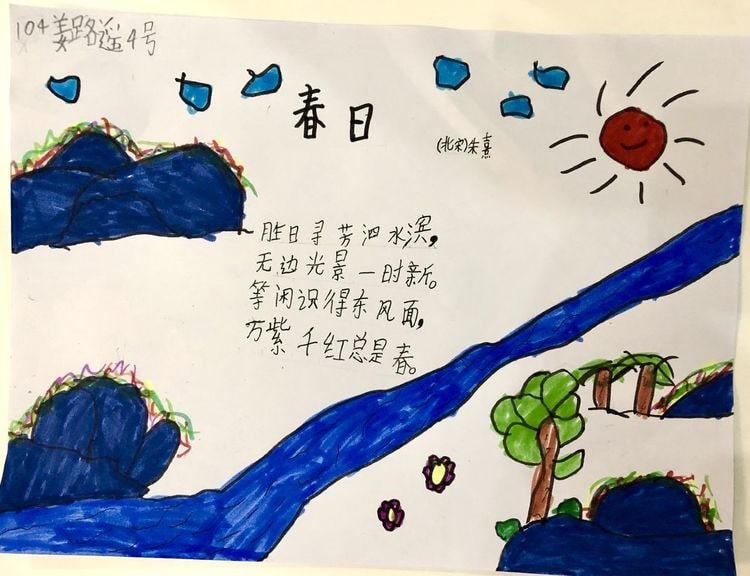 104姜路遥4号
春日
(北宋)朱熹
胜日寻芳泗水滨,
无边光景一时新。
等闲识得东风面,
万紫千红总是春。